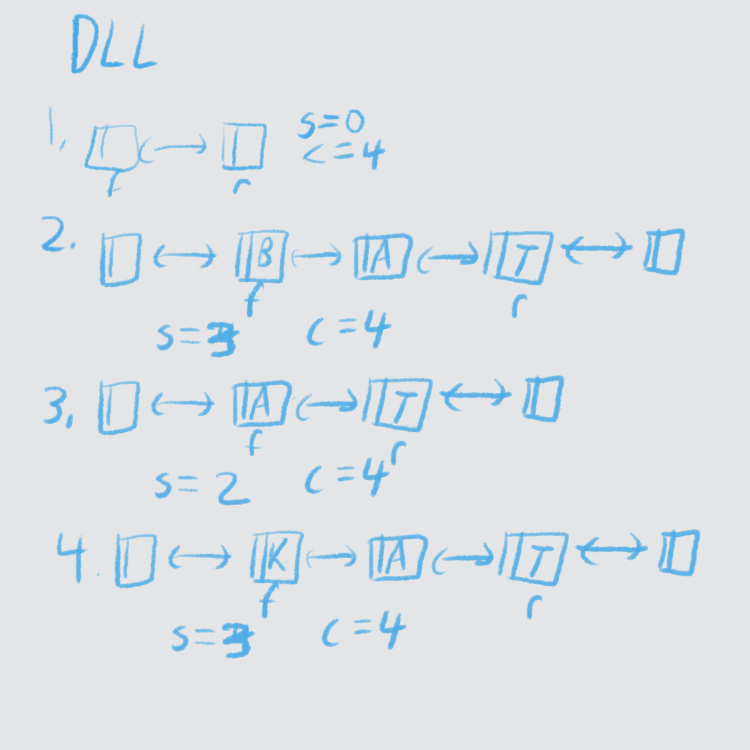 DLL
1. s=0
c=4
f r
2. B A T
f r
s=3 c=4
3. A T
f r
s=2 c=4
4. K A T
f r
s=3 c=4